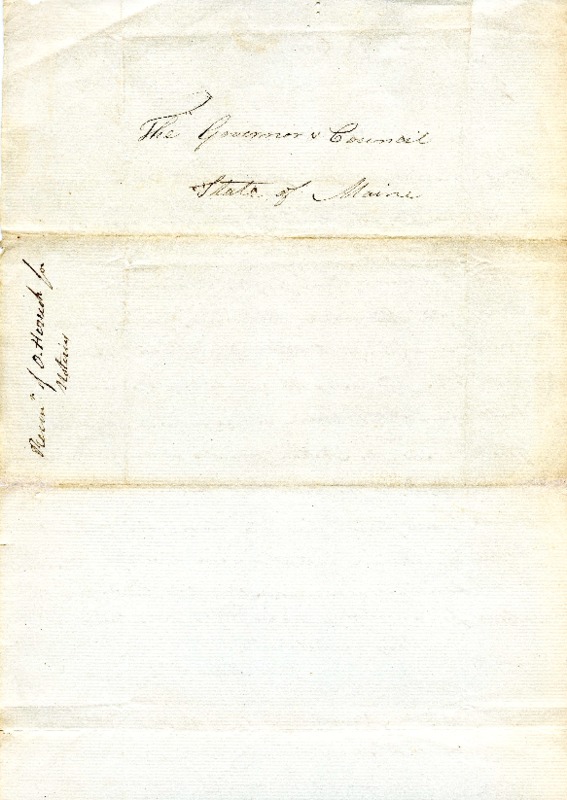 The Governor & Council
State of Maine
Recomn. of O. Herrick for
Notaries